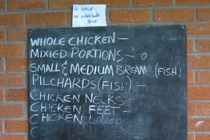 WHOLE CHICKEN –
MIXIED PORTIONS –
SMALL & MEDIUM BREAM (FISH)
PILCHARDS (FISH) –
CHICKEN NECKS
CHICKEN FEET
CHICKEN